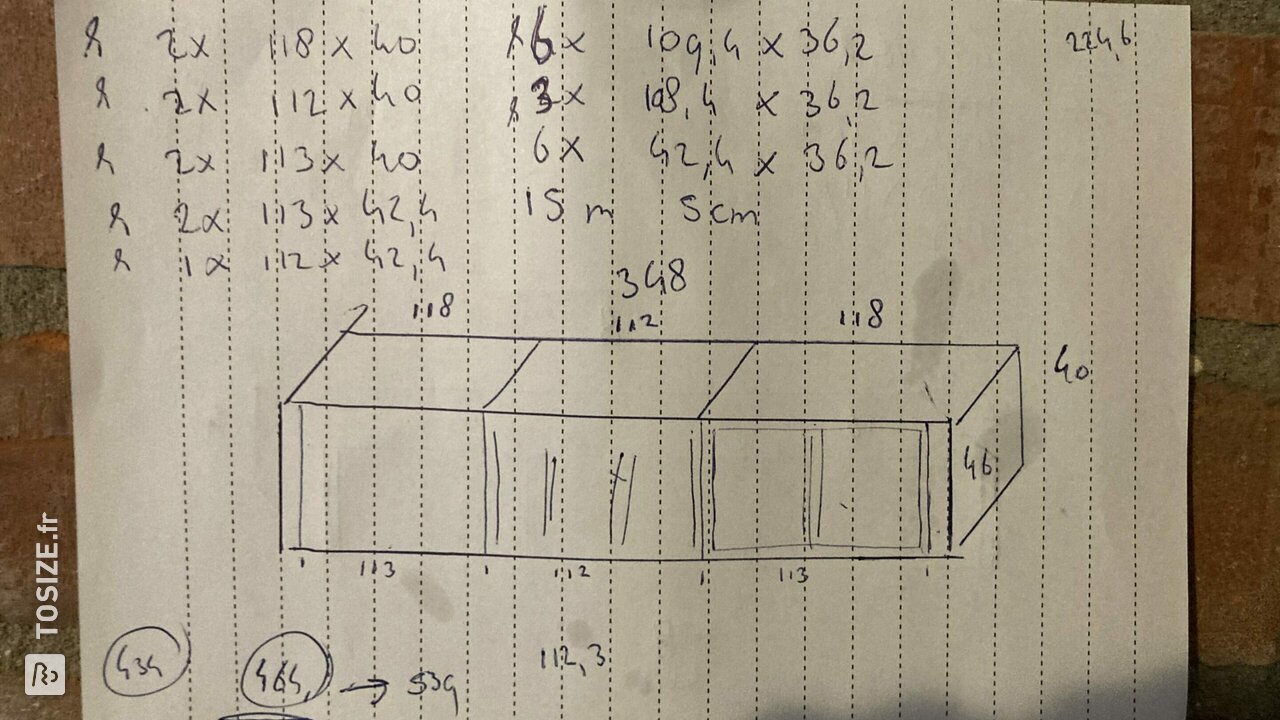 2x 118 x 40
2x 112 x 40
2x 113 x 40
2x 113 x 42,4
1x 112 x 42,4
6x 109,4 x 36,2
3x 108,4 x 36,2
6x 42,4 x 36,2
15 m 5cm
224,6
348
118 112 118
40
46
1 113 1 112 1 113 1
434
464, → 539
112,3
TOSIZE.fr